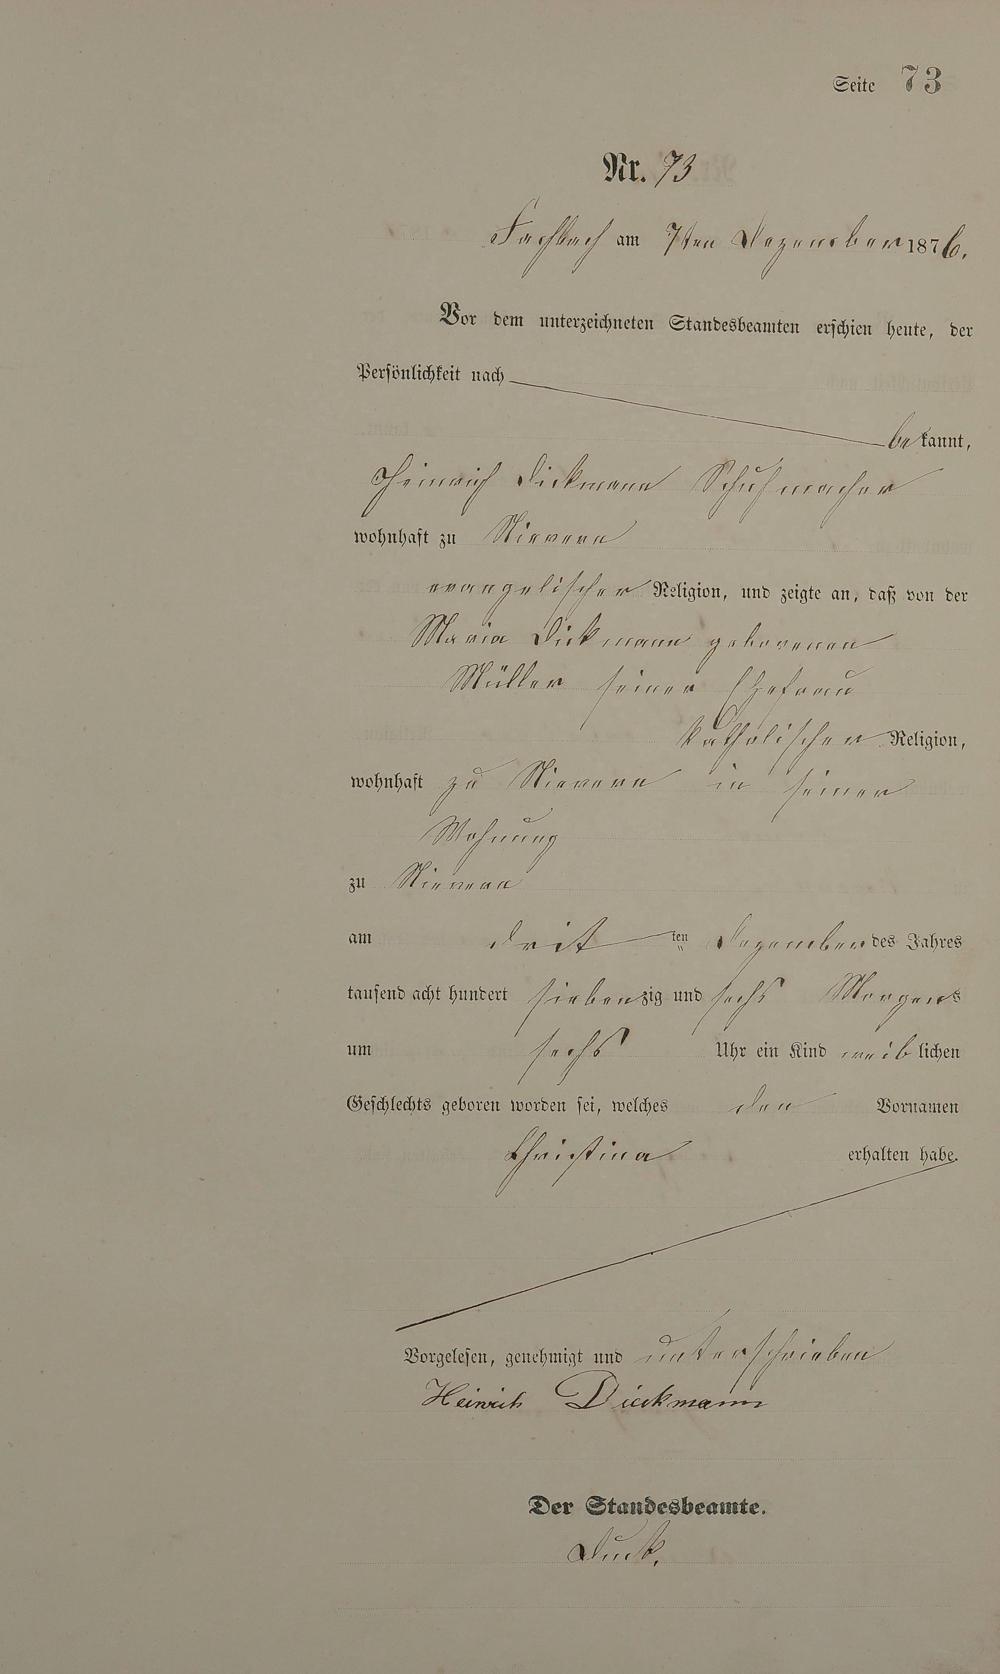 Seite 73
Nr. 73
Fachbach am 7ten Dezember 1876.
Vor dem unterzeichneten Standesbeamten erschien heute, der
Persönlichkeit nach
bekannt,
Heinrich Dickmann Schuhmacher
wohnhaft zu Nievern
evangelischer Religion, und zeigte an, daß von der
Maria Dickmann geborenen
Müller seiner Ehefrau
katholischer Religion,
wohnhaft zu Nievern in seiner
Wohnung
zu Nievern
am dritten Dezember des Jahres
tausend acht hundert siebenzig und sechs Morgens
um sechs Uhr ein Kind weiblichen
Geschlechts geboren worden sei, welches den Vornamen
Christina erhalten habe.
Vorgelesen, genehmigt und unterschrieben
Heinrich Dieckmann
Der Standesbeamte.